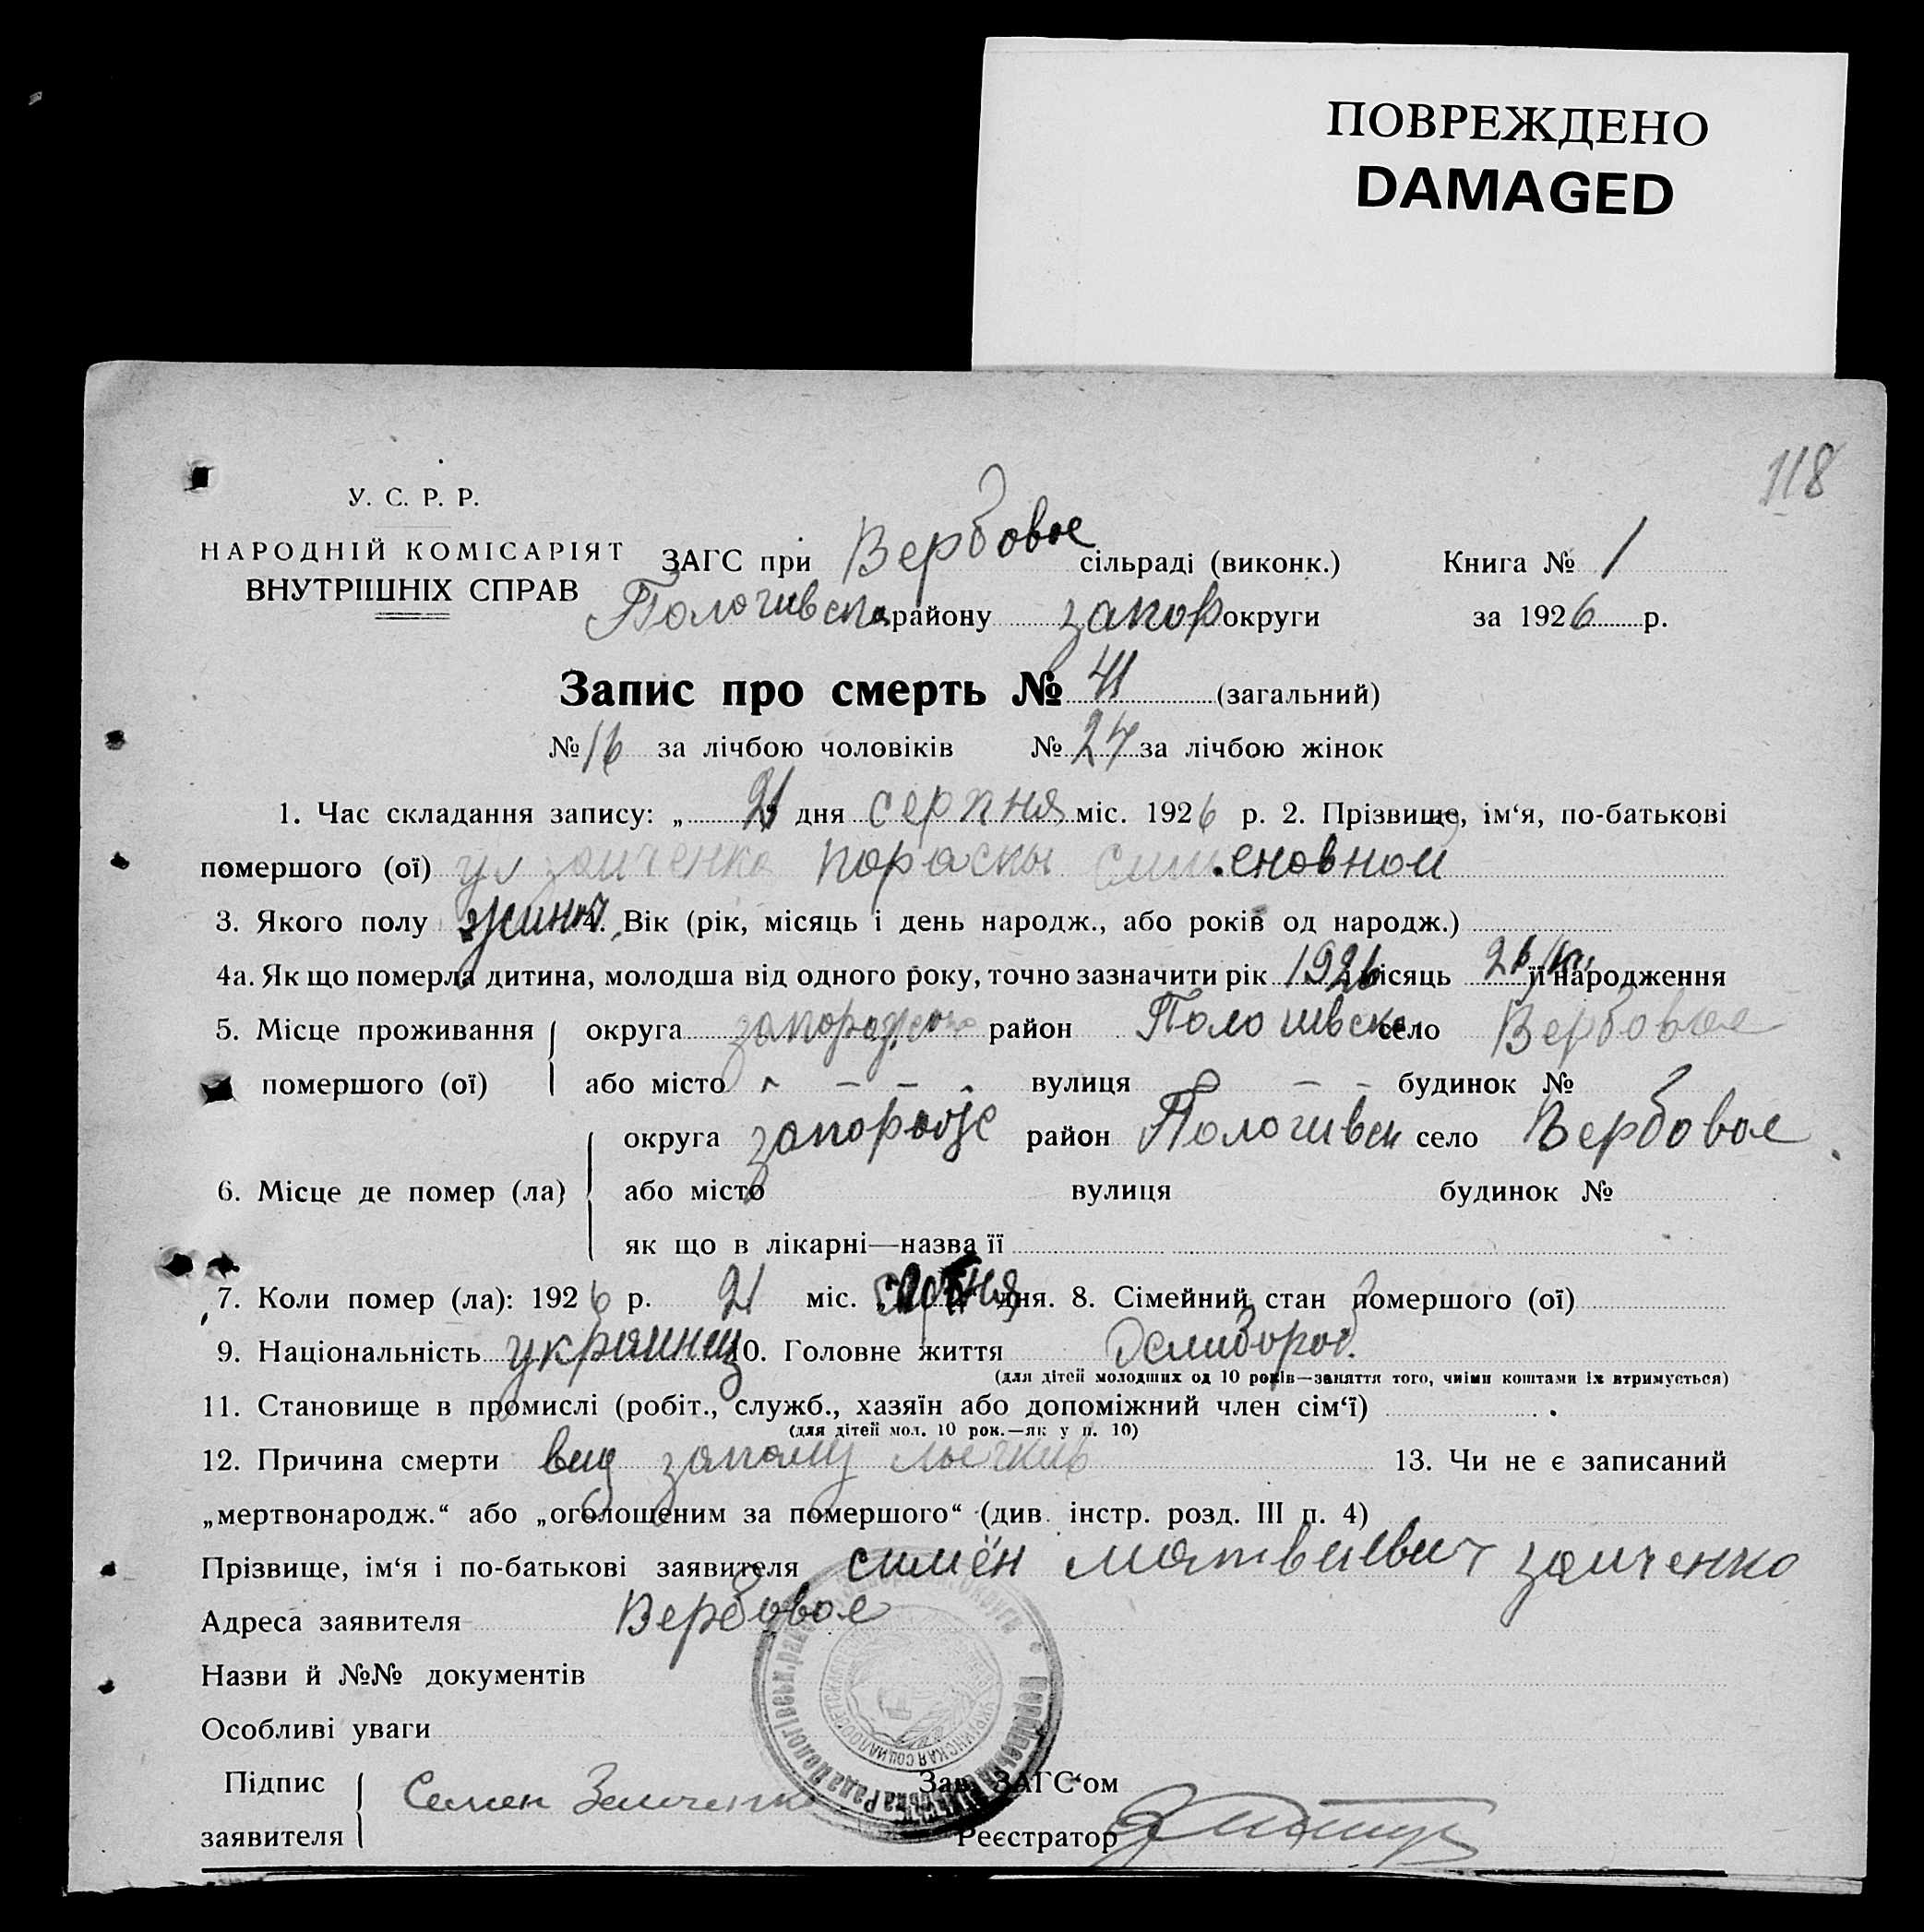 ПОВРЕЖДЕНО
DAMAGED
118
У. С. Р. Р.
НАРОДНІЙ КОМІСАРІЯТ
ВНУТРІШНІХ СПРАВ
ЗАГС при Вербовое сільраді (виконк.) Книга № 1
району запор округи за 1926 р.
Запис про смерть № 41 (загальний)
№ 16 за лічбою чоловіків № 24 за лічбою жінок
1. Час складання запису: „ 21 дня серпня міс. 1926 р. 2. Прізвище, ім‘я, по-батькові
помершого (ої) параскы
3. Якого полу 4. Вік (рік, місяць і день народж., або років од народж.)
4а. Як що померла дитина, молодша від одного року, точно зазначити рік 1926 місяць її народження
5. Місце проживання округа район село Вербовое
помершого (ої) або місто - - - - вулиця - - - будинок №
6. Місце де помер (ла) округа район село Вербовое
або місто вулиця будинок №
як що в лікарні—назва її
7. Коли помер (ла): 1926 р. 21 міс. дня. 8. Сімейний стан помершого (ої)
9. Національність 10. Головне життя
(для дітей молодших од 10 років—заняття того, чиїми коштами їх втримується)
11. Становище в промислі (робіт., служб., хазяїн або допоміжний член сім‘ї)
(для дітей мол. 10 рок.—як у п. 10)
12. Причина смерти вид запалу 13. Чи не є записаний
„мертвонародж.“ або „оголошеним за помершого“ (див. інстр. розд. III п. 4)
Прізвище, ім‘я і по-батькові заявителя симён матвиевич заиченко
Адреса заявителя Вербовое
Назви й №№ документів
Особливі уваги
Підпис заявителя Семен Заиченко Зав. ЗАГС‘ом
Реєстратор